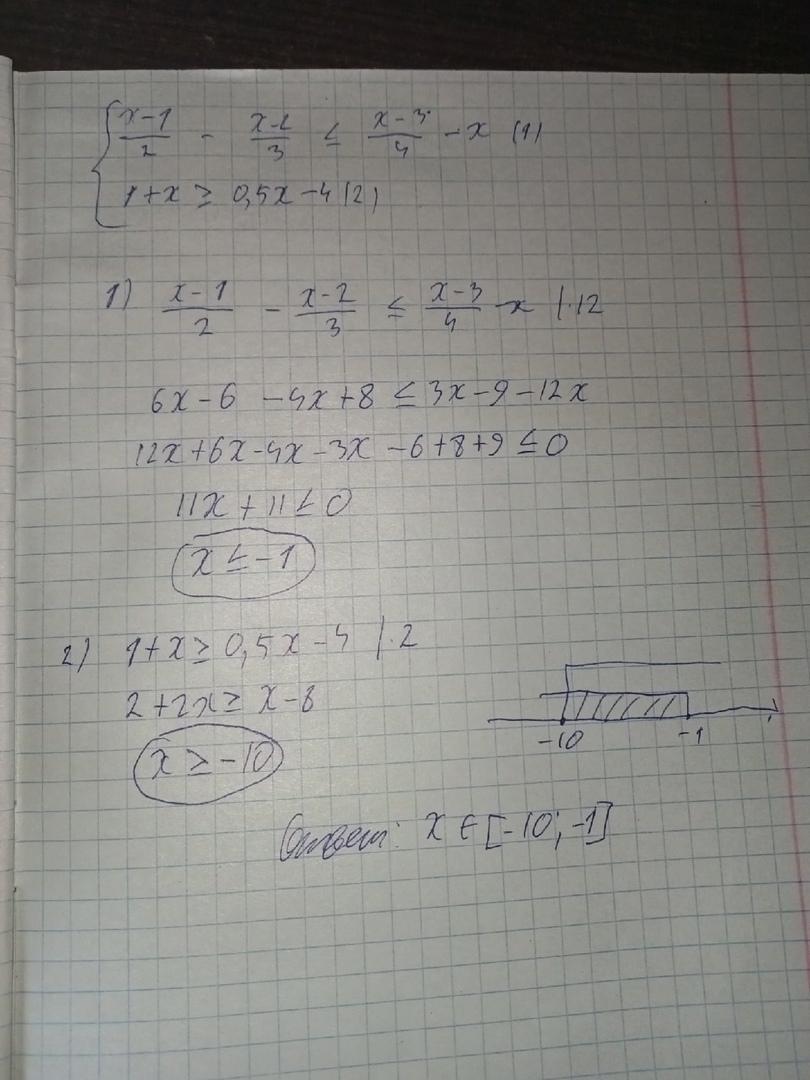 { (x-1)/2 - (x-2)/3 ≤ (x-3)/4 - x (1)
1+x ≥ 0,5x-4 (2)
1) (x-1)/2 - (x-2)/3 ≤ (x-3)/4 - x |·12
6x-6 -4x+8 ≤ 3x-9-12x
12x+6x-4x-3x -6+8+9 ≤ 0
11x+11 ≤ 0
x ≤ -1
2) 1+x ≥ 0,5x-4 |·2
2+2x ≥ x-8
x ≥ -10
-10 -1
Ответ: x ∈ [-10; -1]